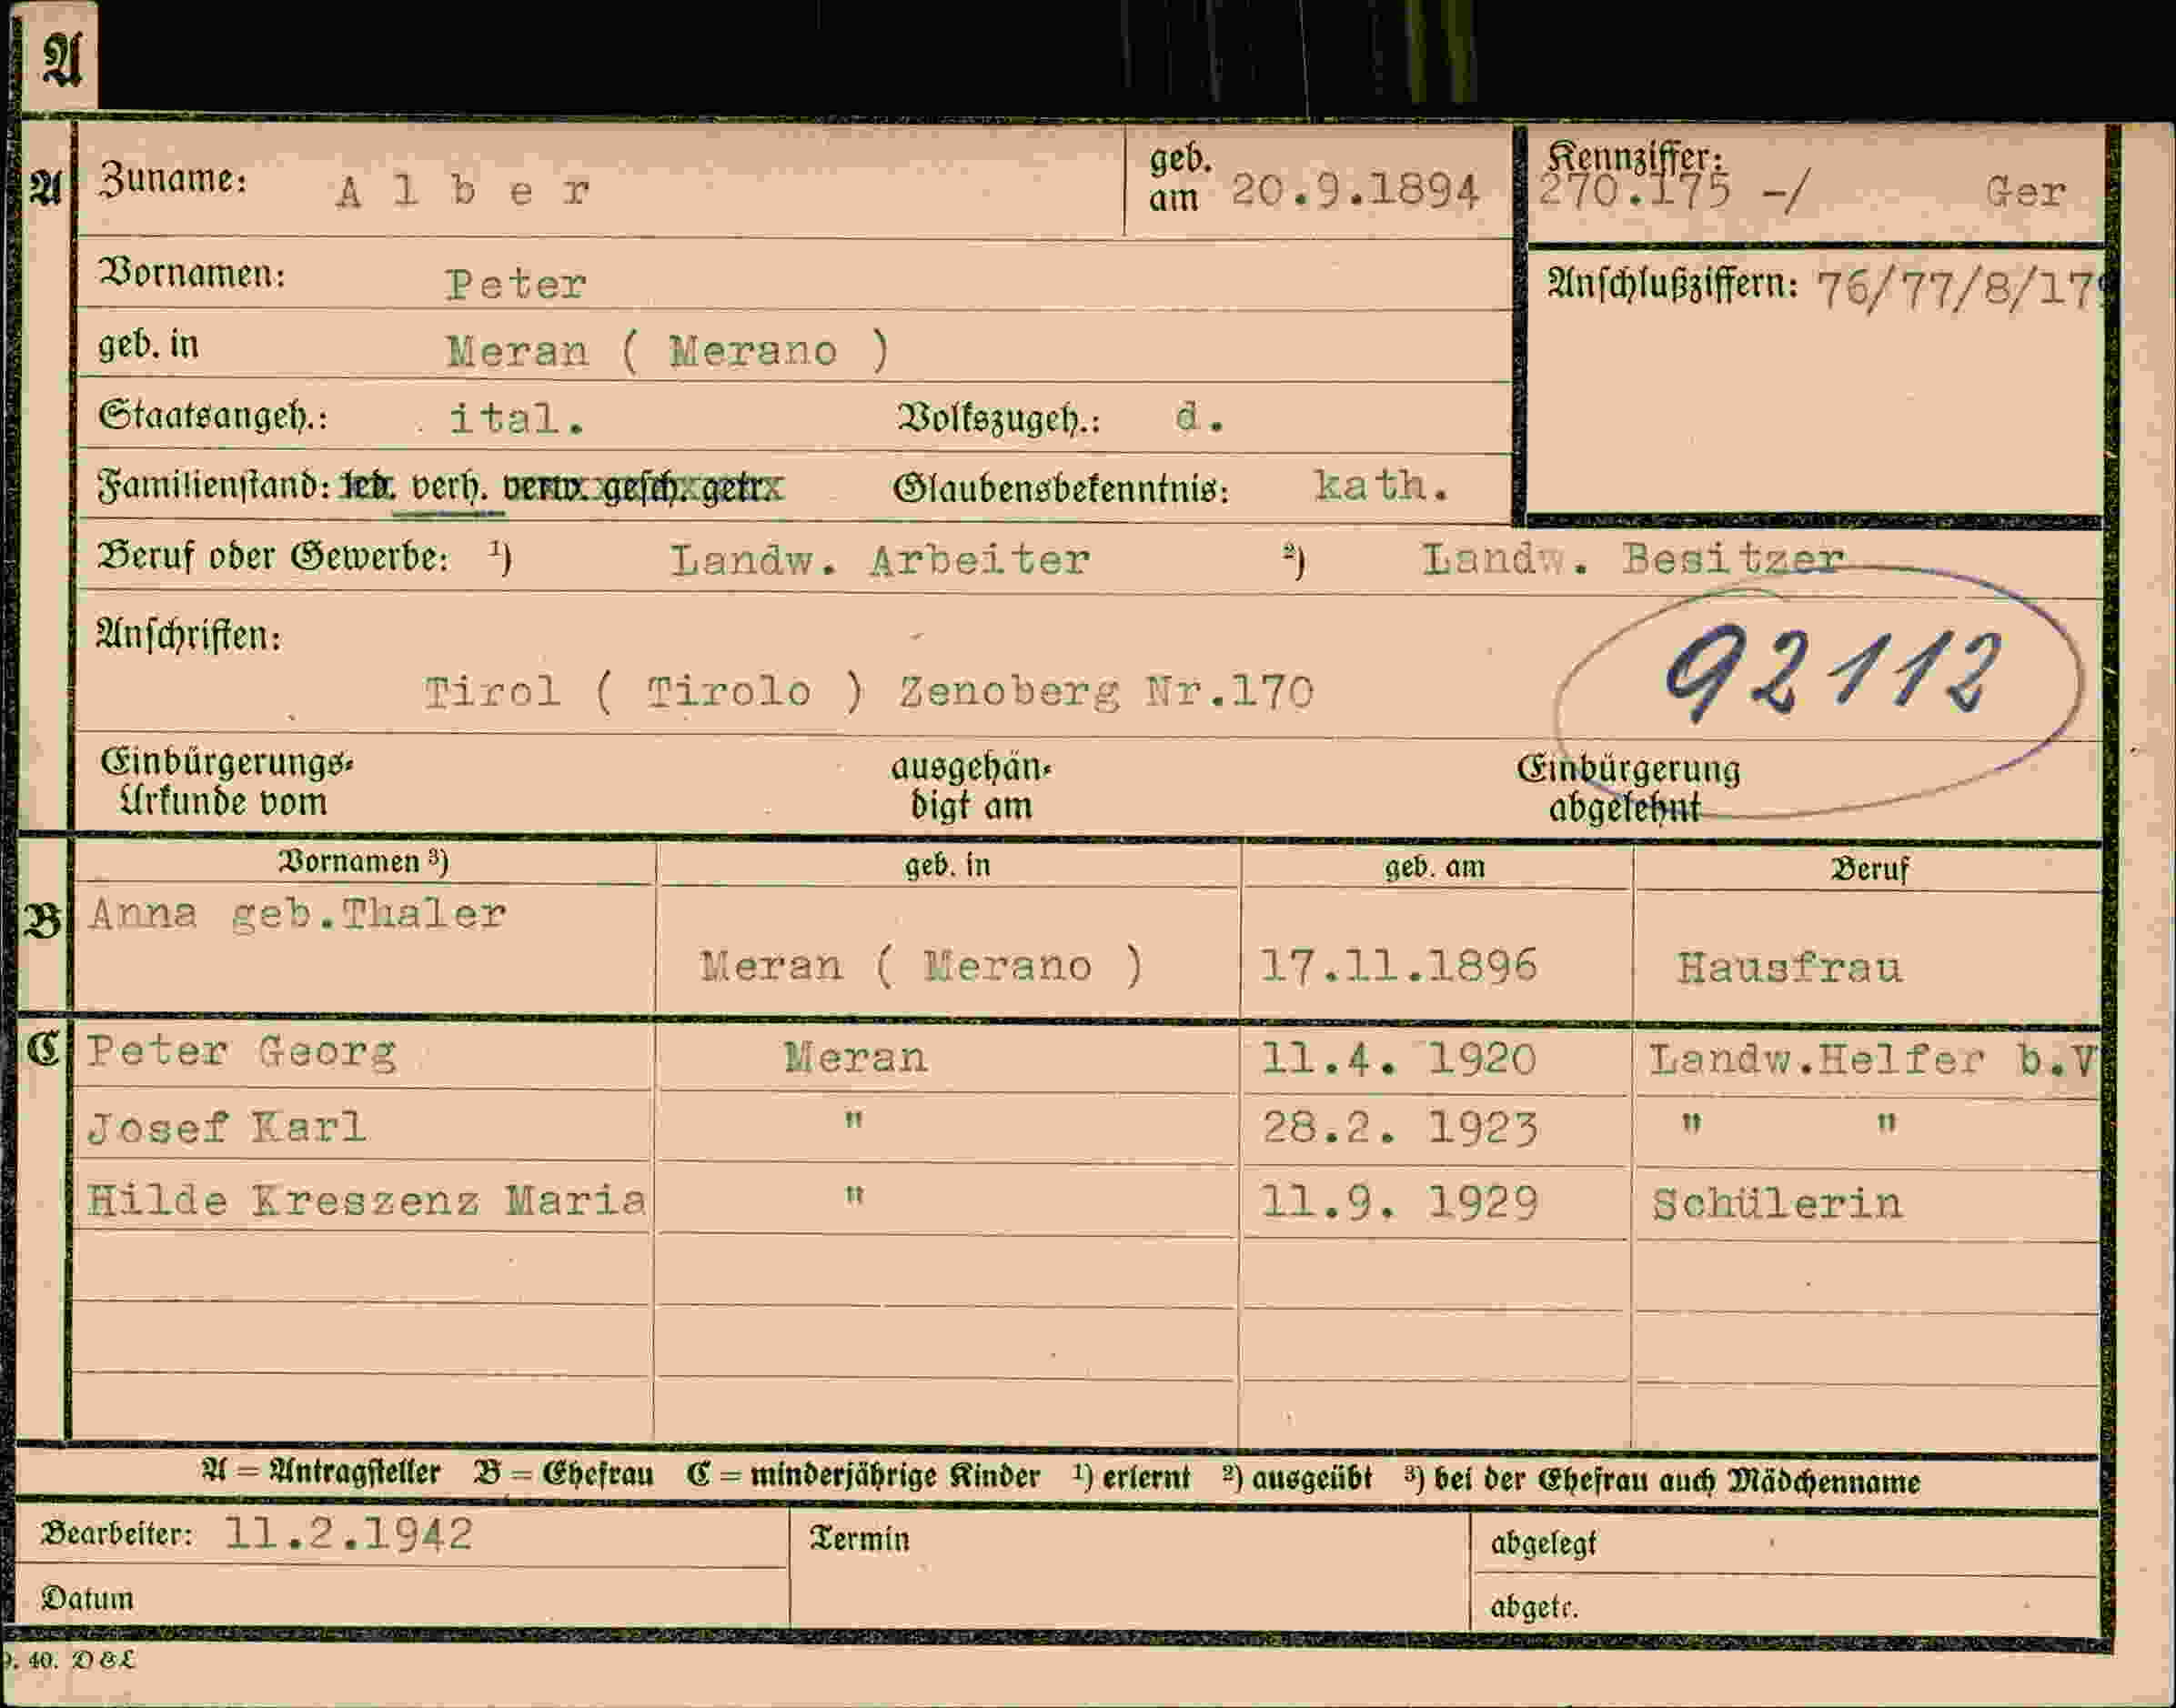 A
A Zuname: A l b e r geb. am 20.9.1894 Kennziffer: 270.175 -/ Ger
Vornamen: Peter Anschlußziffern: 76/77/8/179
geb. in Meran ( Merano )
Staatsangeh.: ital. Volkszugeh.: d.
Familienstand: led. verh. verw. gesch. getr. Glaubensbekenntnis: kath.
Beruf oder Gewerbe: ¹) Landw. Arbeiter ²) Landw. Besitzer
Anschriften:
92112
Tirol ( Tirolo ) Zenoberg Nr.170
Einbürgerungs- ausgehän- Einbürgerung
Urkunde vom digt am abgelehnt
Vornamen ³) geb. in geb. am Beruf
B Anna geb.Thaler
Meran ( Merano ) 17.11.1896 Hausfrau
C Peter Georg Meran 11.4. 1920 Landw.Helfer b.V
Josef Karl " 28.2. 1923 " "
Hilde Kreszenz Maria " 11.9. 1929 Schülerin
A = Antragsteller B = Ehefrau C = minderjährige Kinder ¹) erlernt ²) ausgeübt ³) bei der Ehefrau auch Mädchenname
Bearbeiter: 11.2.1942 Termin abgelegt
Datum abgetr.
40. D & L